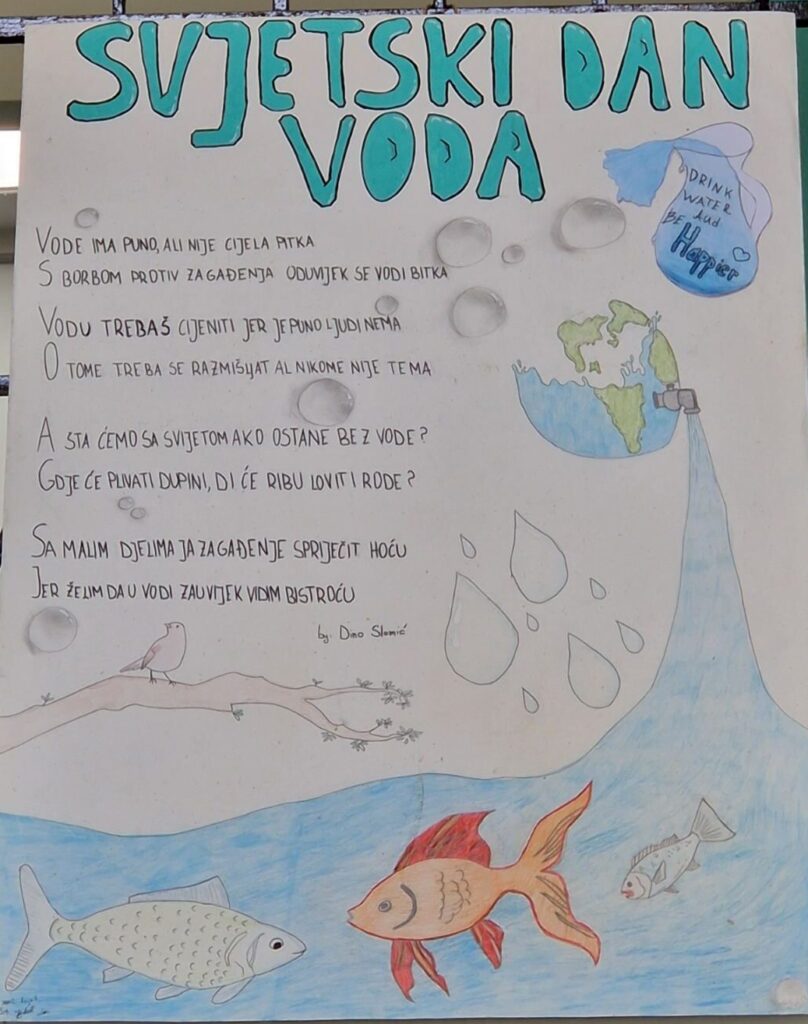 SVJETSKI DAN
VODA
DRINK
WATER
And
BE
Happier
VODE IMA PUNO, ALI NIJE CIJELA PITKA
S BORBOM PROTIV ZAGAĐENJA ODUVIJEK SE VODI BITKA
VODU TREBAŠ CIJENITI JER JE PUNO LJUDI NEMA
O TOME TREBA SE RAZMIŠLJAT AL NIKOME NIJE TEMA
A STA ĆEMO SA SVIJETOM AKO OSTANE BEZ VODE?
GDJE ĆE PLIVATI DUPINI, DI ĆE RIBU LOVITI RODE?
SA MALIM DJELIMA JA ZAGAĐENJE SPRIJEČIT HOĆU
JER ŽELIM DA U VODI ZAUVIJEK VIDIM BISTROĆU
by. Dino Slomić